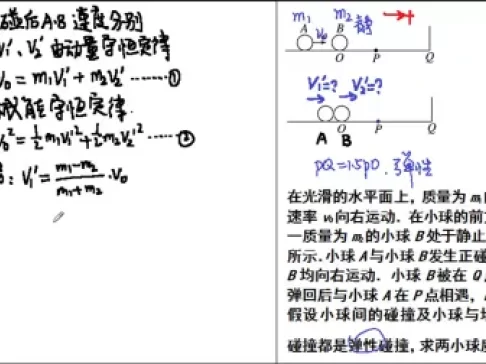 碰后A·B速度分别
V₁′、V₂′由动量守恒定律
V₀=m₁V₁′+m₂V₂′ ……①
械能守恒定律
V₀²=½m₁V₁′²+½m₂V₂′² ……②
: V₁′=(m₁-m₂)/(m₁+m₂)·V₀
m₁ m₂ 静
A V₀ B
O P Q
V₁′=? V₂′=?
A B O P Q
PQ=1.5PO. 弹性
在光滑的水平面上，质量为 m₁
速率 v₀ 向右运动. 在小球的前方
一质量为 m₂ 的小球 B 处于静止
所示. 小球 A 与小球 B 发生正碰
B 均向右运动. 小球 B 被在 Q
弹回后与小球 A 在 P 点相遇，
假设小球间的碰撞及小球与
碰撞都是弹性碰撞，求两小球质